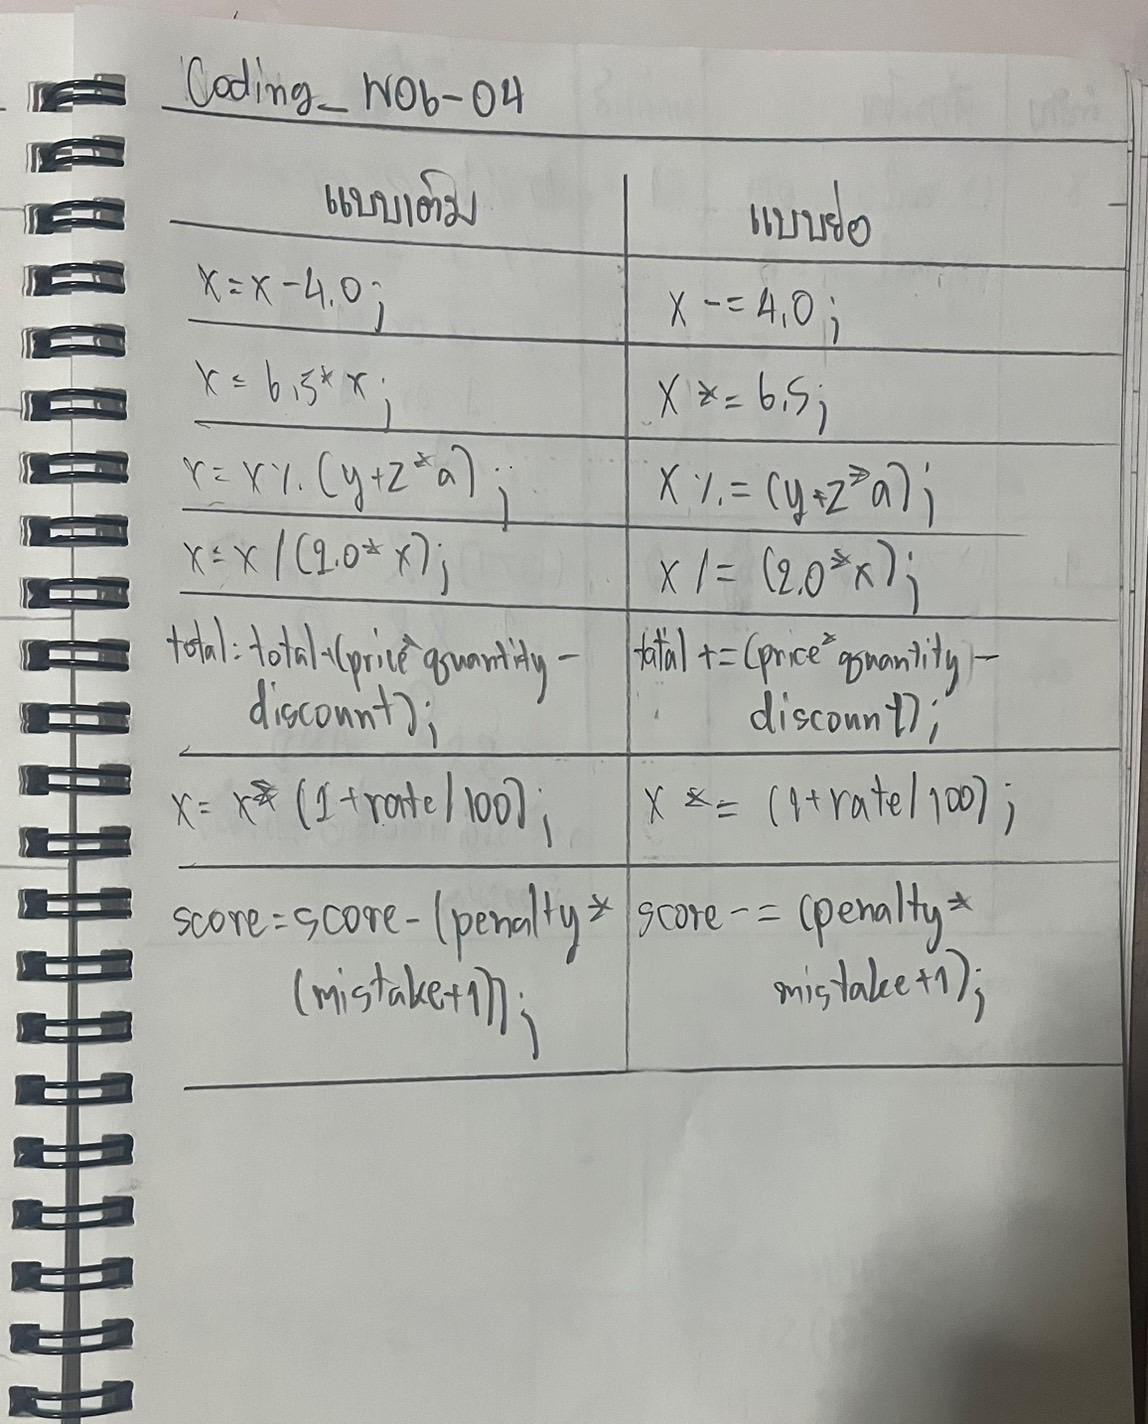 Coding_W06-04
แบบเต็ม แบบย่อ
x=x-4.0; x -= 4.0;
x = 6.5*x; x *= 6.5;
x=x%(y+z*a); x %= (y+z*a);
x=x/(2.0*x); x /= (2.0*x);
total=total+(price*quantity- total += (price*quantity-
discount); discount);
x= x* (1+rate/100); x *= (1+rate/100);
score=score-(penalty* score -= (penalty*
(mistake+1)); mistake+1);